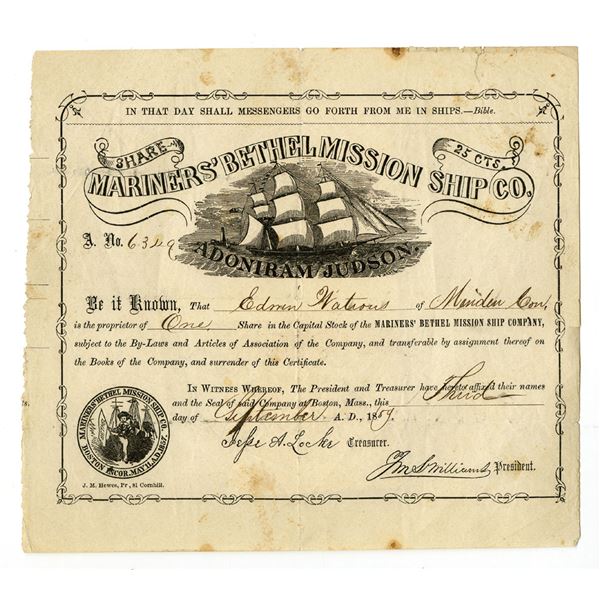 IN THAT DAY SHALL MESSENGERS GO FORTH FROM ME IN SHIPS.—Bible.
SHARE 25 CTS.
MARINERS' BETHEL MISSION SHIP CO.
A. No. 6349
ADONIRAM JUDSON.
Be it Known, That Edwin Watrous of Minden Con,
is the proprietor of One Share in the Capital Stock of the MARINERS' BETHEL MISSION SHIP COMPANY,
subject to the By-Laws and Articles of Association of the Company, and transferable by assignment thereon on
the Books of the Company, and surrender of this Certificate.
IN WITNESS WHEREOF, The President and Treasurer have hereto affixed their names
and the Seal of said Company at Boston, Mass., this Third
day of September A. D., 1859.
Jesse A. Locke Treasurer.
Wm S. Williams President.
MARINERS' BETHEL MISSION SHIP CO.
BOSTON INCOR. MAY 11, A.D. 1857.
J. M. Hewes, Pr, 81 Cornhill.